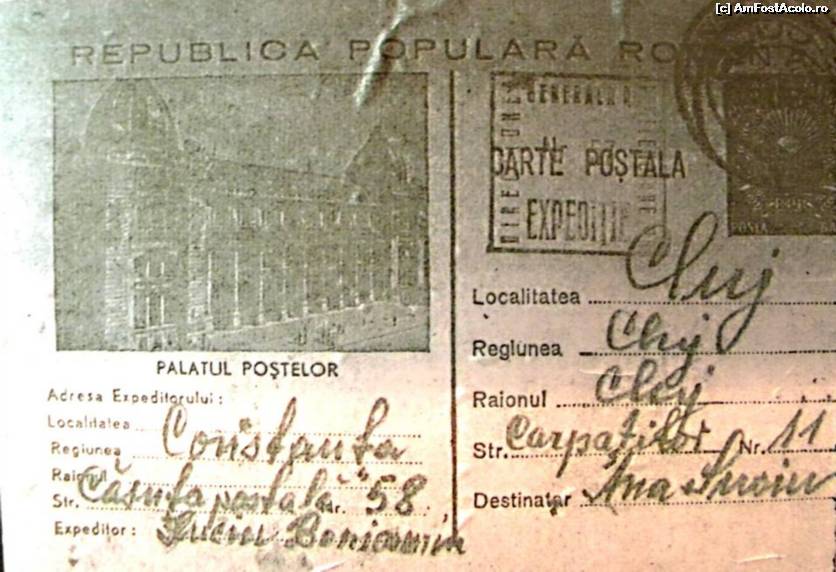 [c] AmFostAcolo.ro
REPUBLICA POPULARĂ ROMÂNĂ
GENERALA
CARTE POȘTALA
EXPEDIȚIE
POȘTA
PALATUL POȘTELOR
Adresa Expeditorului :
Localitatea Constanta
Regiunea
Raionul Căsuta postală
Str. nr. 58
Expeditor :
Localitatea Cluj
Regiunea Cluj
Raionul Cluj
Str. Carpaților Nr. 11
Destinatar Ana